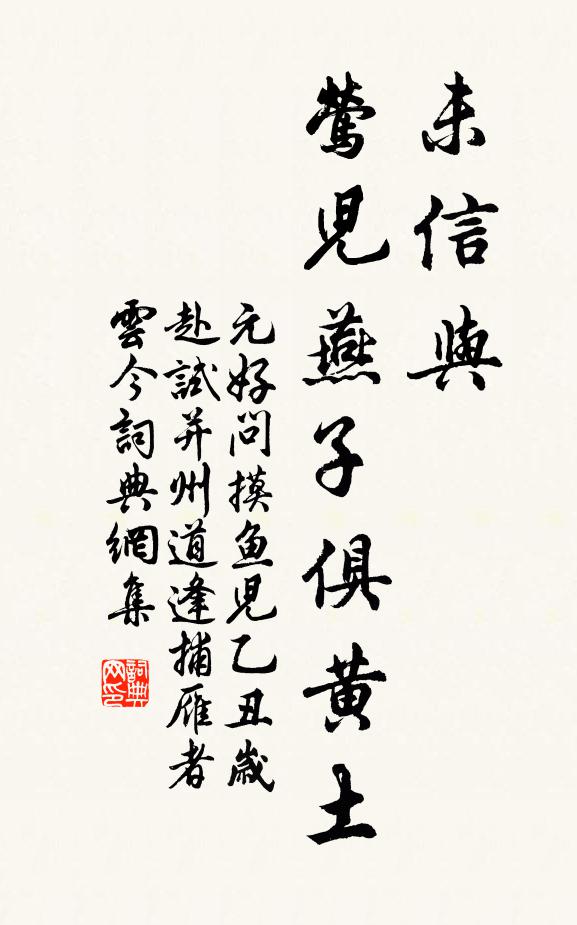 未信與
鶯兒燕子俱黃土
元好問摸魚兒乙丑歲
赴試并州道逢捕雁者
雲今詞典網集
詞典网印